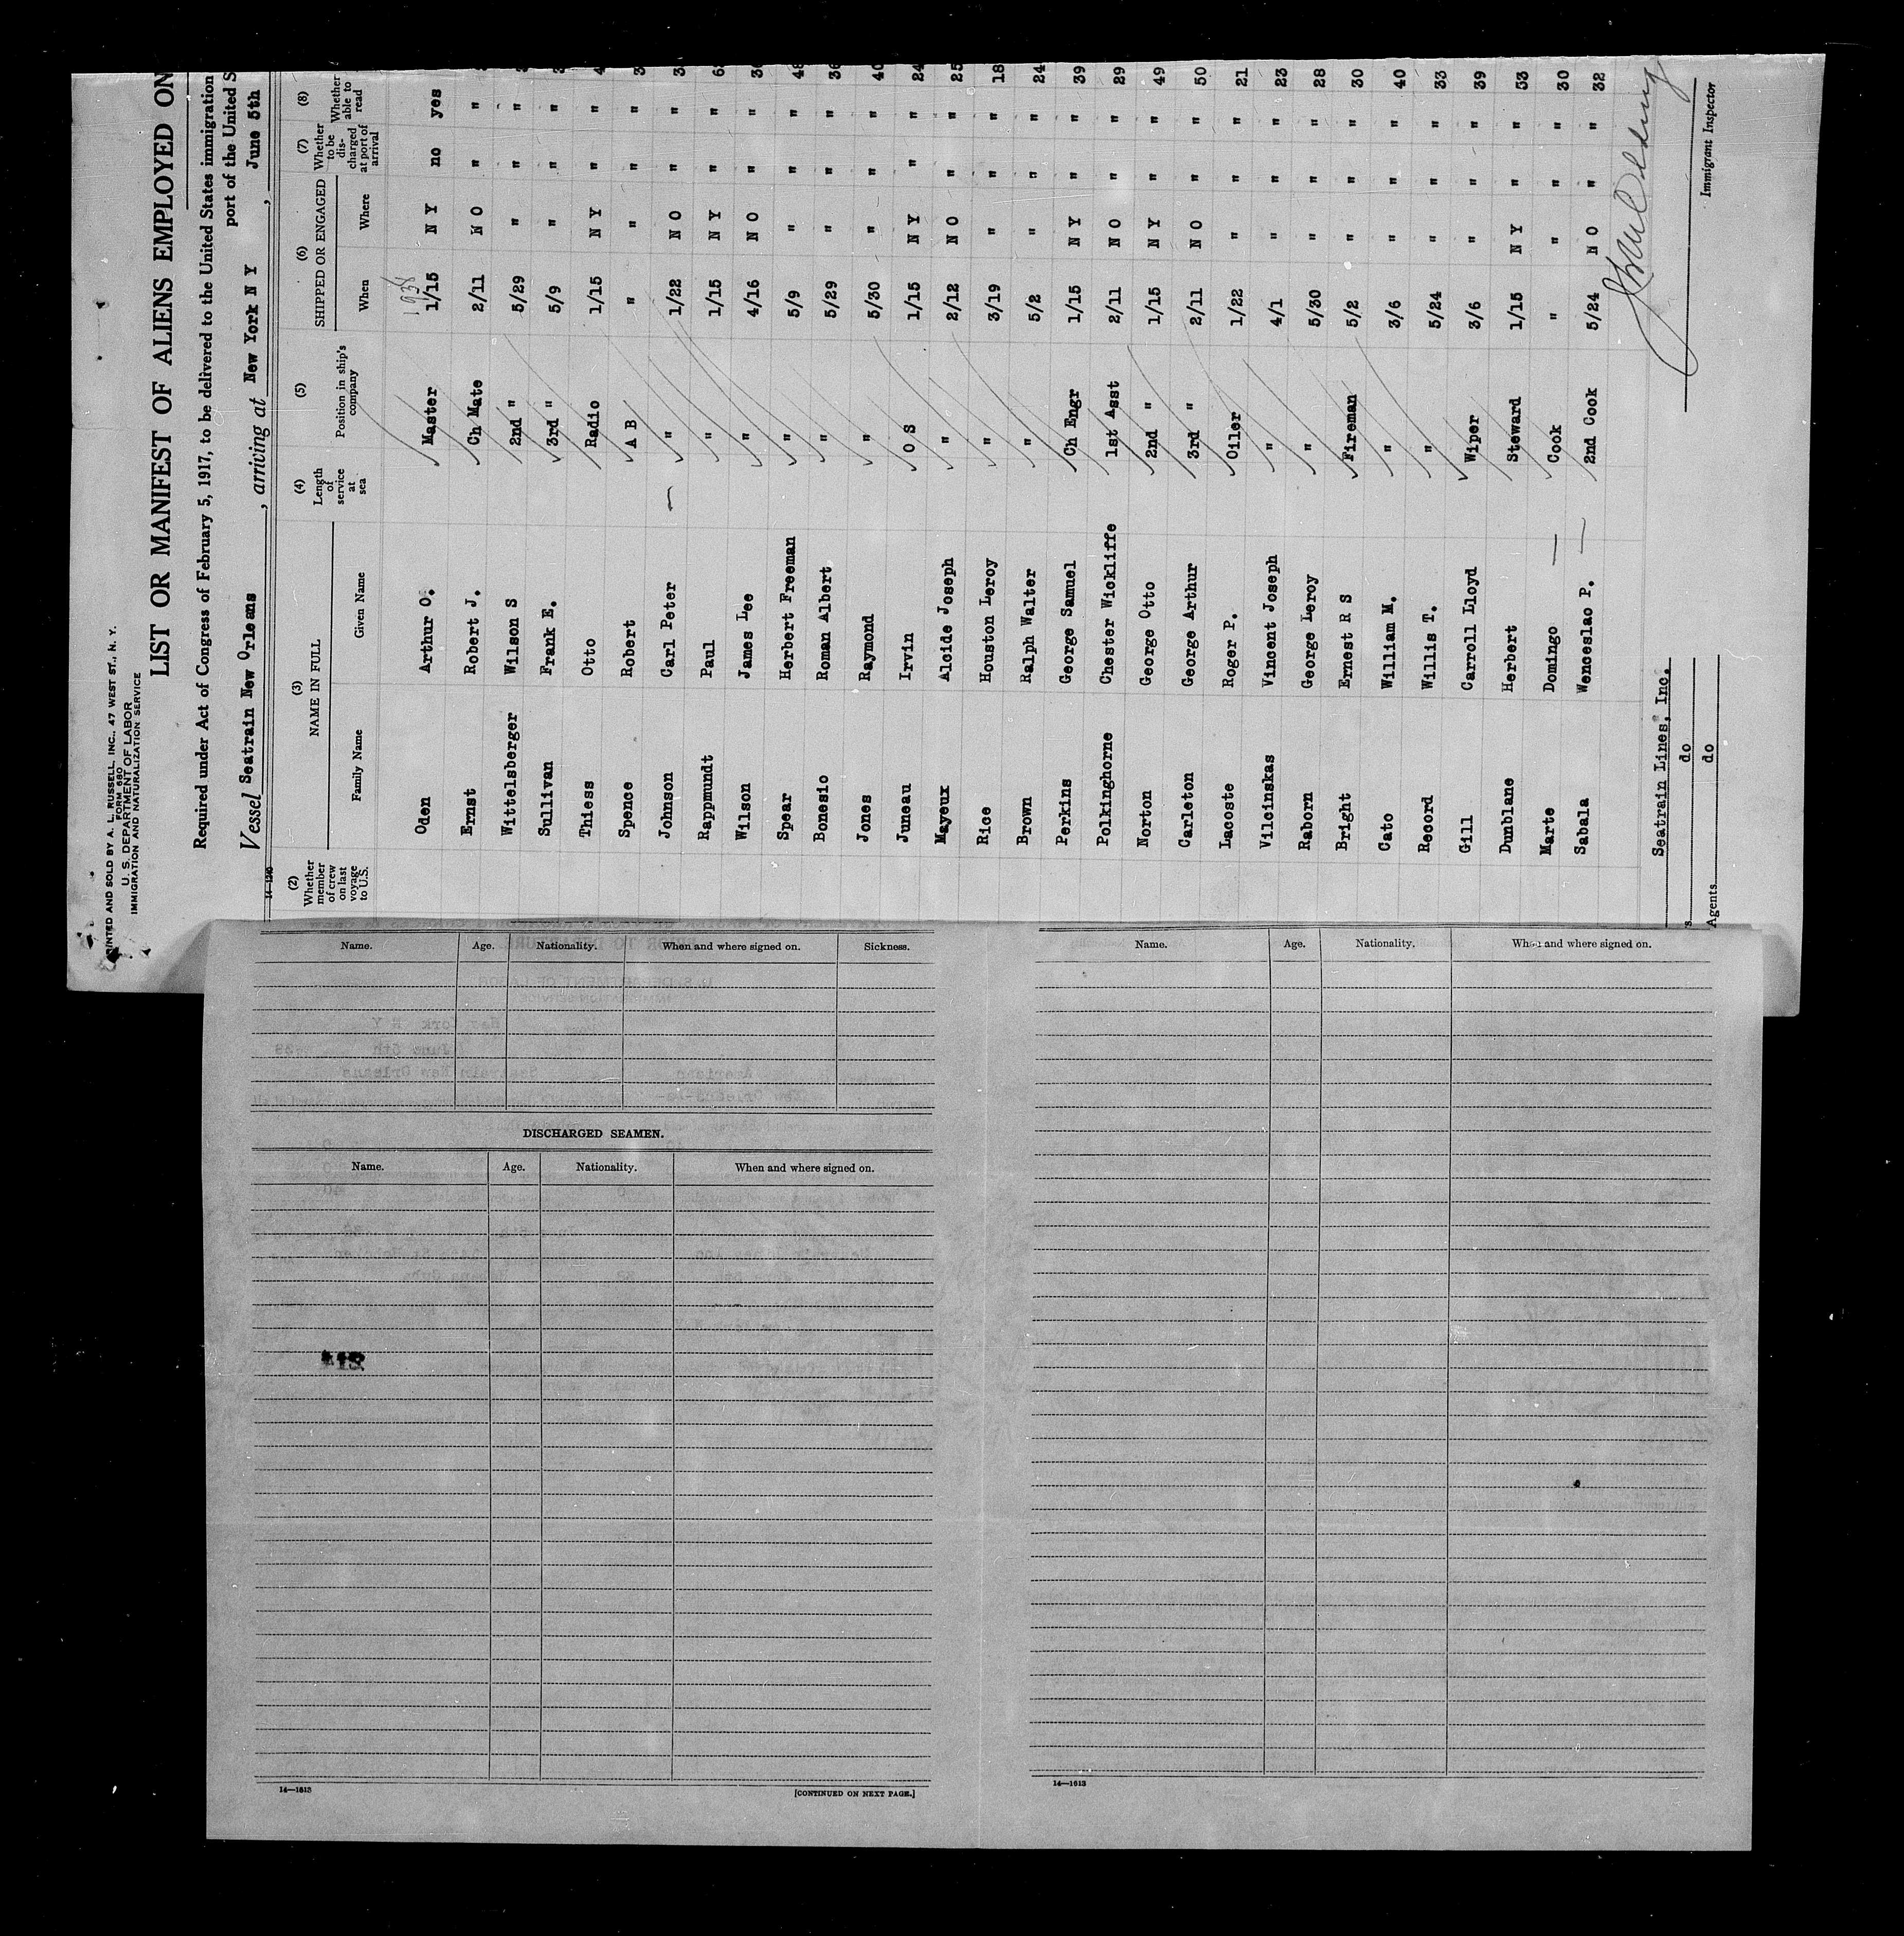 PRINTED AND SOLD BY A. L. RUSSELL, INC., 47 WEST ST., N. Y.
FORM 680
U. S. DEPARTMENT OF LABOR
IMMIGRATION AND NATURALIZATION SERVICE
LIST OR MANIFEST OF ALIENS EMPLOYED ON
Required under Act of Congress of February 5, 1917, to be delivered to the United States immigration
port of the United S
Vessel Seatrain New Orleans, arriving at New York N Y, June 5th
14-1240
(2) Whether member of crew on last voyage to U.S.
(3) NAME IN FULL
Family Name Given Name
(4) Length of service at sea
(5) Position in ship's company
(6) SHIPPED OR ENGAGED
When Where
(7) Whether to be discharged at port of arrival
(8) Whether able to read
1938
Oden Arthur O. Master 1/15 N Y no yes
Ernst Robert J. Ch Mate 2/11 N O " "
Wittelsberger Wilson S 2nd " 5/29 " " "
Sullivan Frank E. 3rd " 5/9 " " "
Thiess Otto Radio 1/15 N Y " "
Spence Robert A B " " " "
Johnson Carl Peter — " 1/22 N O " "
Rappmundt Paul " 1/15 N Y " "
Wilson James Lee " 4/16 N O " "
Spear Herbert Freeman " 5/9 " " " 48
Bonesio Roman Albert " 5/29 " " " 36
Jones Raymond " 5/30 " " " 40
Juneau Irvin O S 1/15 N Y " " 24
Mayeux Alcide Joseph " 2/12 N O " " 25
Rice Houston Leroy " 3/19 " " " 18
Brown Ralph Walter " 5/2 " " " 24
Perkins George Samuel Ch Engr 1/15 N Y " " 39
Polkinghorne Chester Wickliffe 1st Asst 2/11 N O " " 29
Norton George Otto 2nd " 1/15 N Y " " 49
Carleton George Arthur 3rd " 2/11 N O " " 50
Lacoste Roger P. Oiler 1/22 " " " 21
Vilcinskas Vincent Joseph " 4/1 " " " 23
Raborn George Leroy " 5/30 " " " 28
Bright Ernest R S Fireman 5/2 " " " 30
Cato William M. " 3/6 " " " 40
Record Willis T. " 5/24 " " " 33
Gill Carroll Lloyd Wiper 3/6 " " " 39
Dunblane Herbert Steward 1/15 N Y " " 53
Marte Domingo — Cook " " " " 30
Sabala Wenceslao P. — 2nd Cook 5/24 N O " " 32
Seatrain Lines, Inc.
do
Agents do
Immigrant Inspector
Name. Age. Nationality. When and where signed on. Sickness.
DISCHARGED SEAMEN.
Name. Age. Nationality. When and where signed on.
14—1613
[CONTINUED ON NEXT PAGE.]
Name. Age. Nationality. When and where signed on.
14—1613